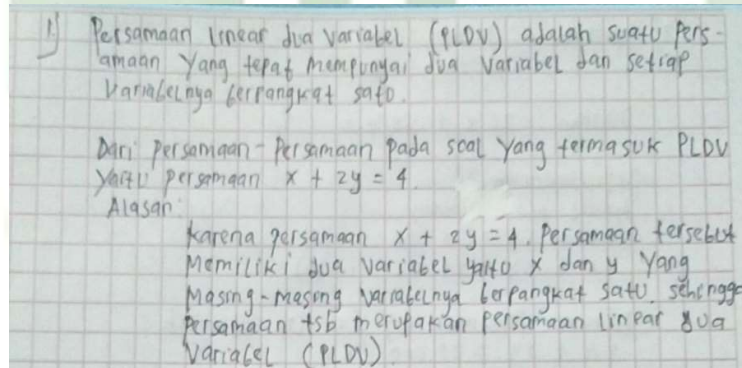 1) Persamaan linear dua variabel (PLDV) adalah suatu Pers-
amaan yang tepat mempunyai dua variabel dan setiap
variabelnya berpangkat satu.
Dari persamaan-persamaan pada soal yang termasuk PLDV
yaitu persamaan x + 2y = 4.
Alasan:
Karena persamaan x + 2y = 4. Persamaan tersebut
Memiliki dua variabel yaitu x dan y yang
Masing-masing variabelnya berpangkat satu. sehingga
Persamaan tsb merupakan persamaan linear dua
Variabel (PLDV)